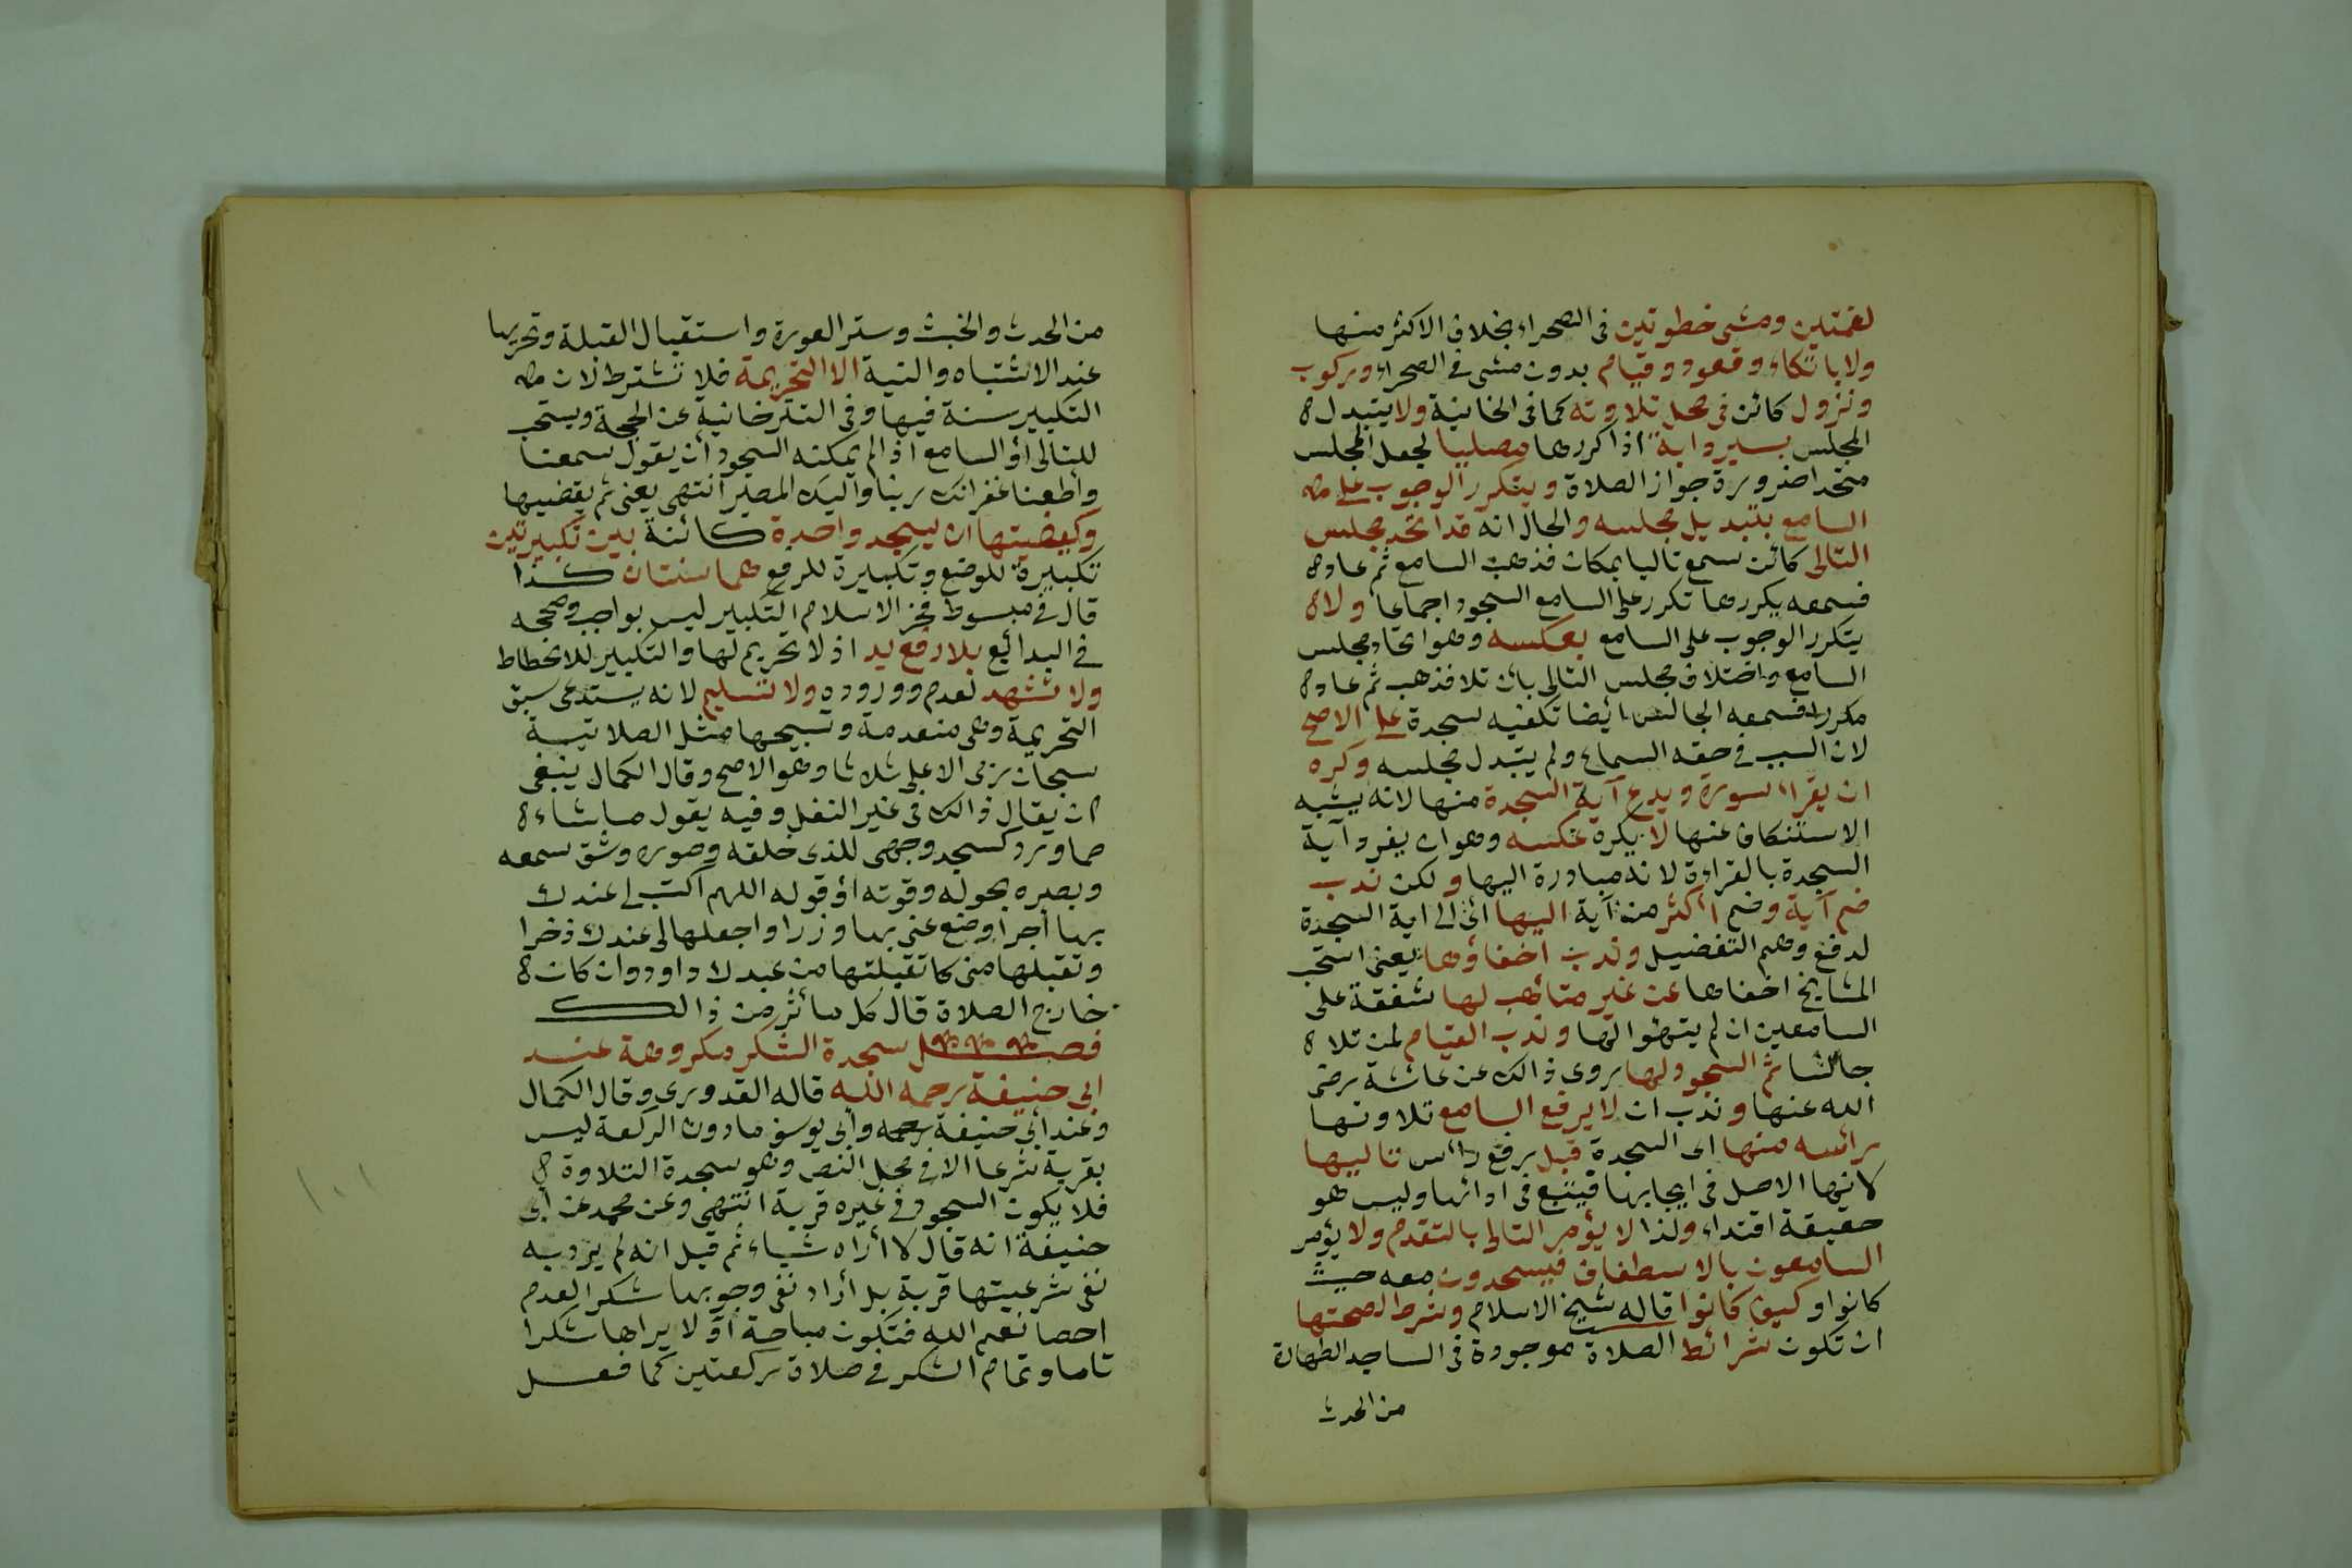 لقمتين ومشى خطوتين فى الصحراء بخلاف الاكثر منها
ولا باتكاء وقعود وقيام بدون مشى فى الصحراء وركوب
ونزول كائن فى محل تلاوته كما فى الخانية ولا يتبدل
المجلس بسير دابة اذا كررها مصليا لجعل المجلس
متحدا ضرورة جواز الصلاة ويتكرر الوجوب على
السامع بتبديل مجلسه والحال انه قد اتحد مجلس
التالى كائن سمع تاليا بمكان فذهب السامع ثم عاد
فسمعه يكررها تكرر على السامع السجود اجماعا ولا
يتكرر الوجوب على السامع بعكسه وهو اتحاد مجلس
السامع واختلاف مجلس التالى بان تلا فذهب ثم عاد
مكررا فسمعه الجالس ايضا تكفيه سجدة على الاصح
لان السبب فى حقه السماع ولم يتبدل مجلسه وكره
ان يقراء سورة ويدع آية السجدة منها لانه يشبه
الاستنكاف عنها لا يكره عكسه وهو ان يفرد آية
السجدة بالقراءة لانه مبادرة اليها ولكن ندب
ضم آية وضم اكثر من آية اليها اى الى اية السجدة
لدفع وهم التفضيل وندب اخفاؤها يعنى استحب
المشايخ اخفاها عن غير متأهب لها شفقة على
السامعين ان لم يتهيؤا لها وندب القيام لمن تلا
جالسا ثم السجود لها روى ذالك عن عائشة رضى
الله عنها وندب ان لا يرفع السامع تلاوتها
رائسه منها اى السجدة قبل رفع رائس تاليها
لانها الاصل فى ايجابها فيتبع فى ادائها وليس هو
حقيقة اقتداء ولذا لا يؤمر التالى بالتقدم ولا يؤمر
السامعون بالاسطفاف فيسجدون معه حيث
كانوا وكيف كانوا قاله شيخ الاسلام وشرط لصحتها
ان تكون شرائط الصلاة موجودة فى الساجد الطهارة
من الحدث
من الحدث والخبث وستر العورة واستقبال القبلة وتحريها
عند الاشتباه والنية الا التحريمة فلا تشترط لان
التكبير سنة فيها وفى التترخانية عن الحجة ويستحب
للتالى أو السامع اذا لم يمكنه السجود أن يقول سمعنا
وأطعنا غفرانك ربنا واليك المصير انتهى يعنى ثم يقضيها
وكيفيتها ان يسجد واحدة كائنة بين تكبيرتين
تكبيرة للوضع وتكبيرة للرفع هما سنتان كذا
قال فى مبسوط فخر الاسلام التكبير ليس بواجب وصححه
فى البدائع بلا رفع يد اذ لا تحريم لها والتكبير للانحطاط
ولا تشهد لعدم وروده ولا تسليم لانه يستدعى سبق
التحريمة وهى منعدمة وتسبيحها مثل الصلاتية
سبحان ربى الاعلى ثلاثا وهو الاصح وقال الكمال ينبغى
ان يقال ذالك فى غير النفل وفيه يقول ما شاء
مما ورد كسجد وجهى للذى خلقه وصوره وشق سمعه
وبصره بحوله وقوته او قوله اللهم اكتب لى عندك
بها أجرا وضع عنى بها وزرا واجعلها لى عندك ذخرا
وتقبلها منى كما تقبلتها من عبدك داود وان كان
خارج الصلاة قال كل ما أثر من ذالك
فصل سجدة الشكر مكروهة عند
ابى حنيفة رحمه الله قاله القدورى وقال الكمال
وعند أبى حنيفة رحمه وأبى يوسف ما دون الركعة ليس
بقربة شرعا الا فى محل النص وهو سجدة التلاوة
فلا يكون السجود فى غيره قربة انتهى وعن محمد عن أبى
حنيفة انه قال لا أراه شياء ثم قيل انه لم يرد به
نفى شرعيتها قربة بل أراد نفى وجوبها شكرا لعدم
احصا نعم الله فتكون مباحة أو لا يراها شكرا
تاما وتمام الشكر فى صلاة ركعتين كما فعل
١٠١